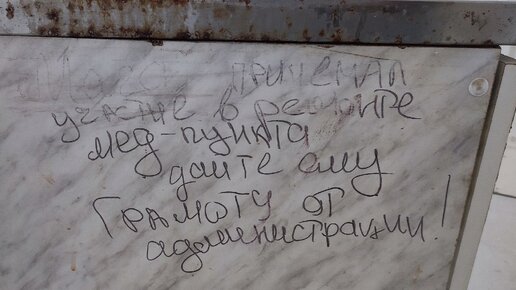 принемал
участие в ремонте
мед-пункта
дайте ему
Грамоту от
администрации!